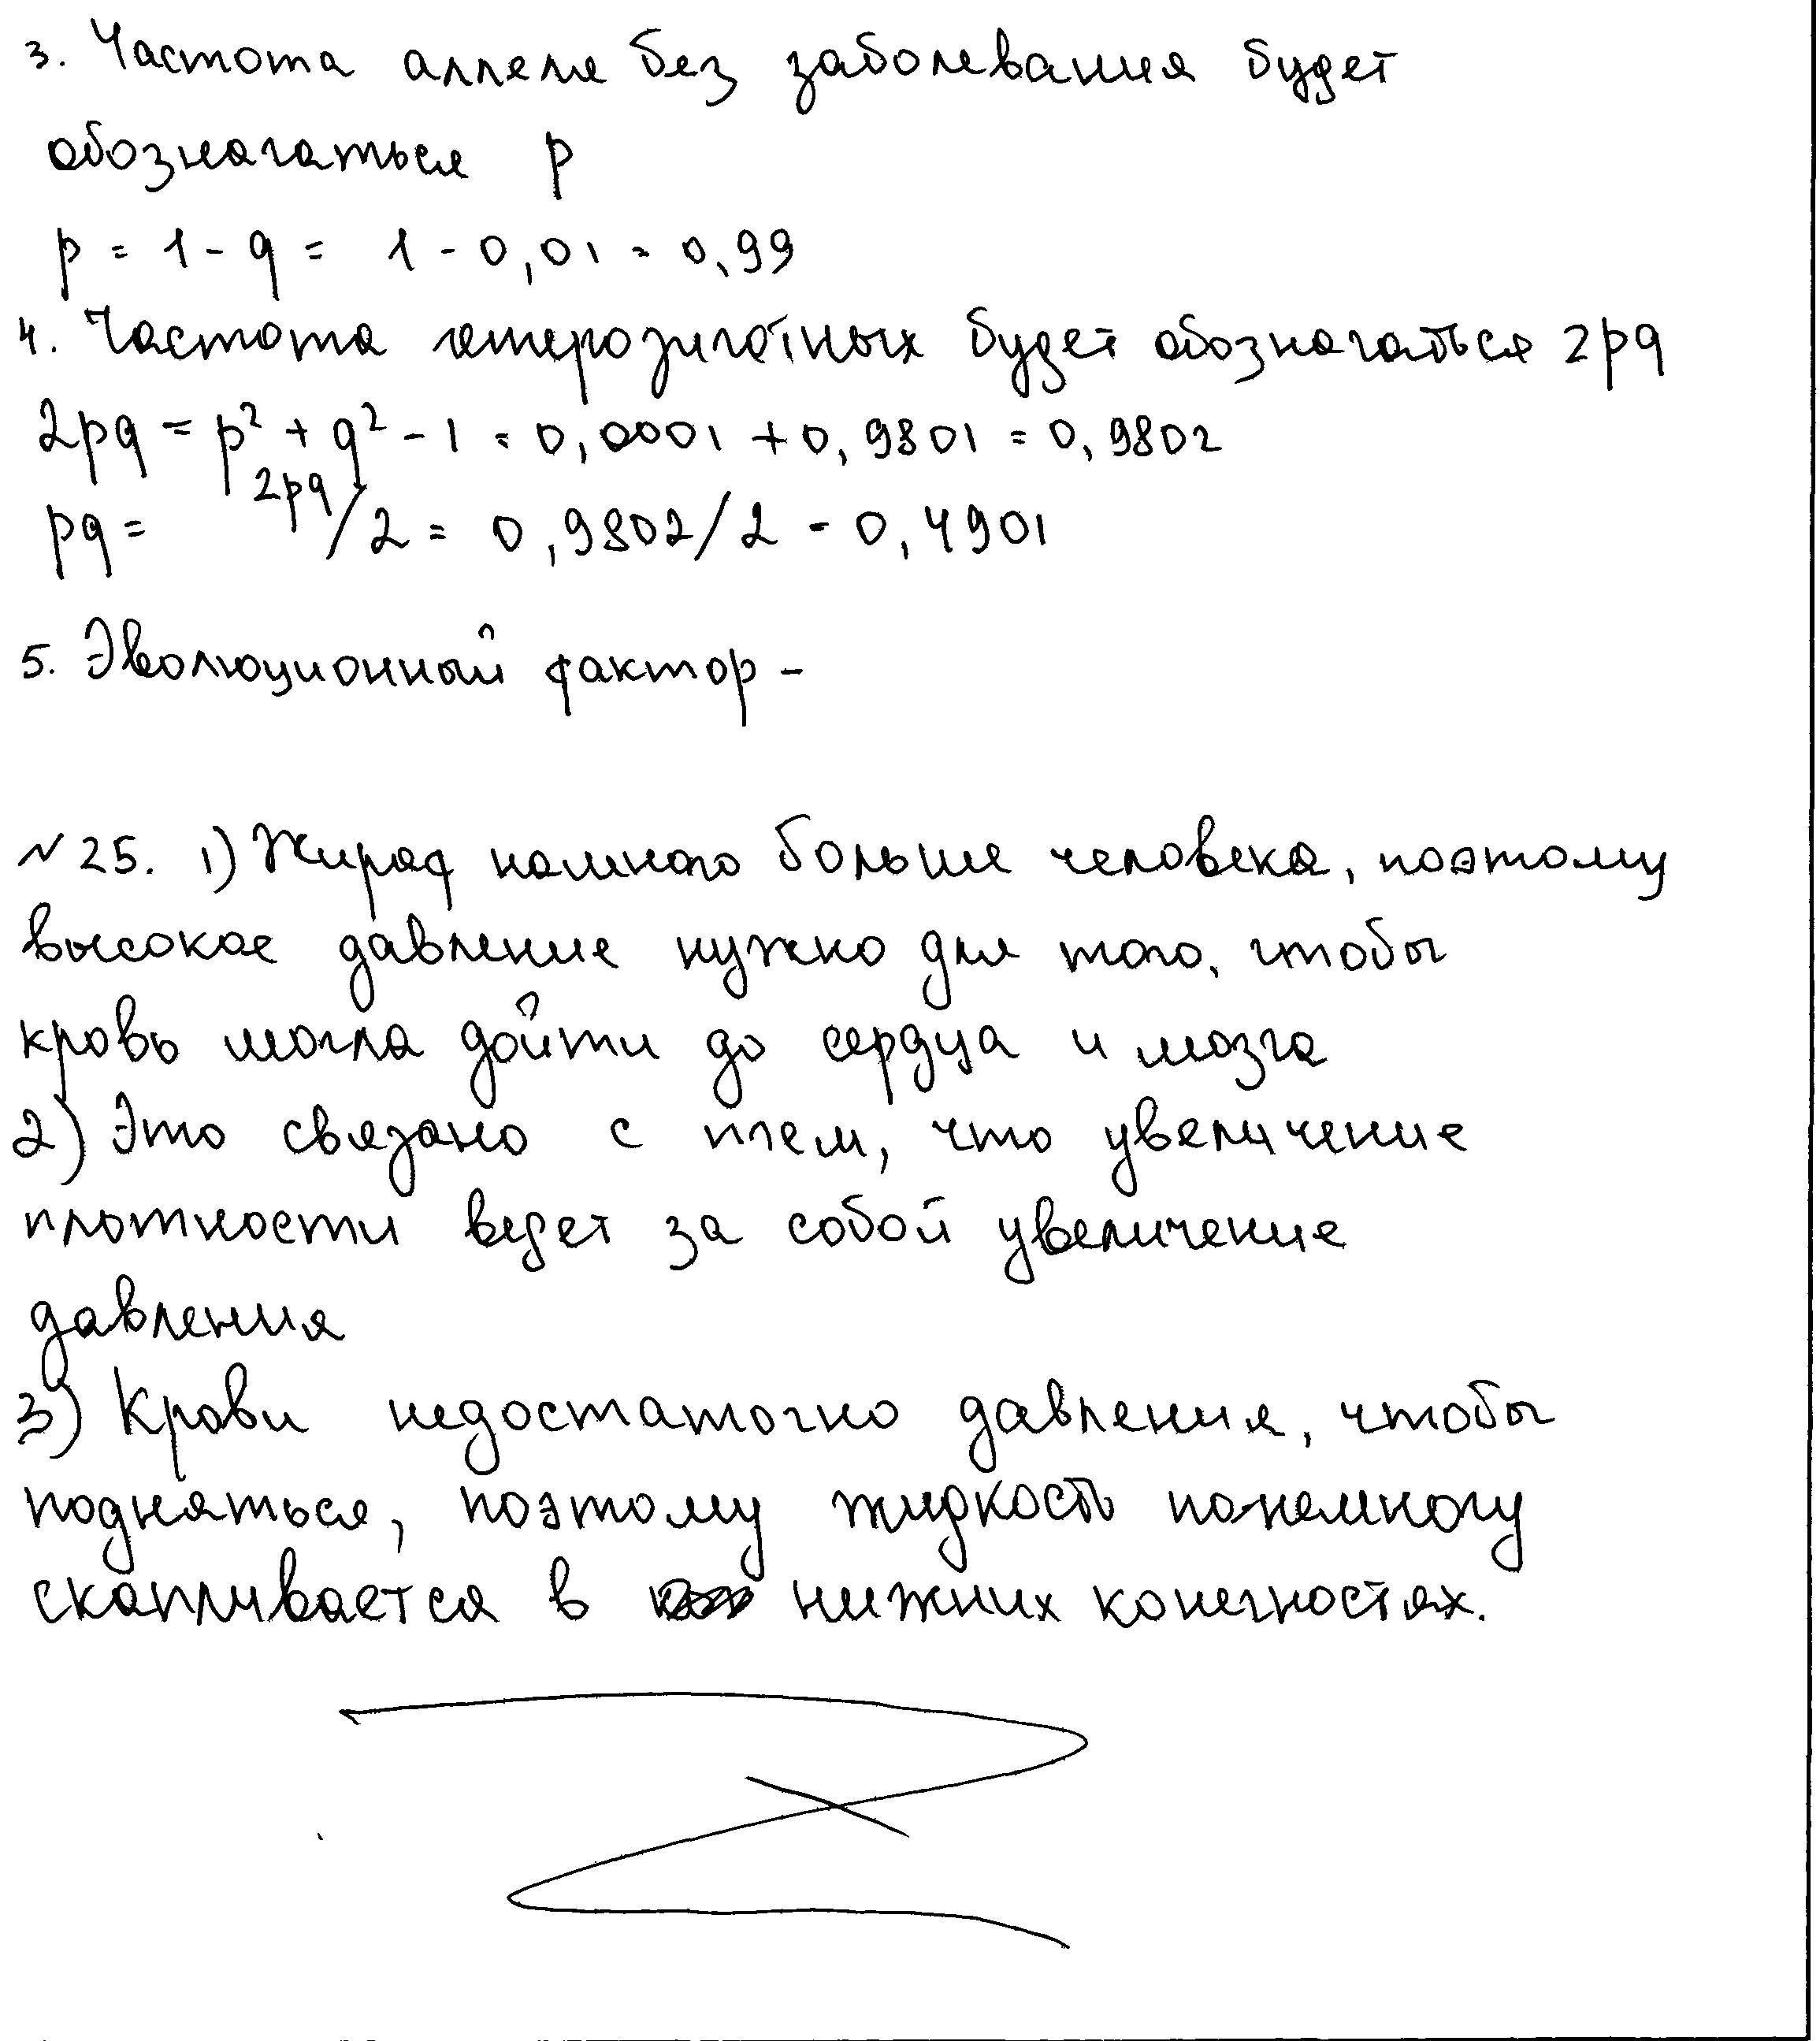 3. Частота аллеля без заболевания будет
обозначаться p
p = 1 - q = 1 - 0,01 = 0,99
4. Частота гетерозиготных будет обозначаться 2pq
2pq = p² + q² - 1 = 0,0001 + 0,9801 = 0,9802
pq = 2pq/2 = 0,9802/2 = 0,4901
5. Эволюционный фактор -
№25. 1) Жираф намного больше человека, поэтому
высокое давление нужно для того, чтобы
кровь могла дойти до сердца и мозга
2) Это связано с тем, что увеличение
плотности ведет за собой увеличение
давления
3) Крови недостаточно давления, чтобы
подняться, поэтому жидкость понемногу
скапливается в нижних конечностях.